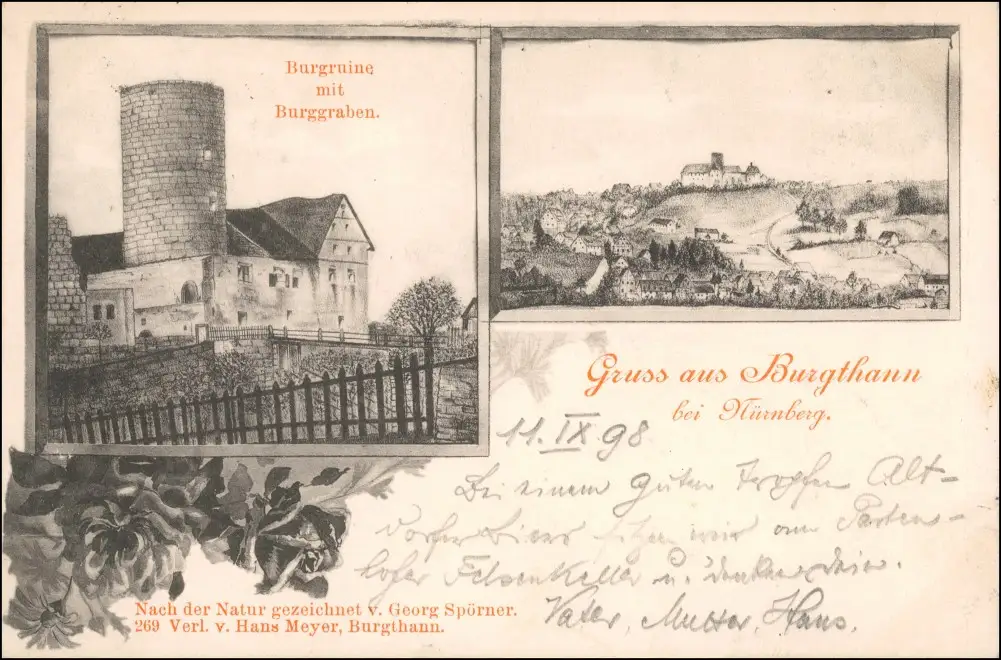 Burgruine
mit
Burggraben.
Gruss aus Burgthann
bei Nürnberg.
11. IX 98
Bei einem guten Tropfen Alt-
dorfer Bieres sitzen wir am
Felsenkeller u.
Vater, Mutter, Hans.
Nach der Natur gezeichnet v. Georg Spörner.
269 Verl. v. Hans Meyer, Burgthann.